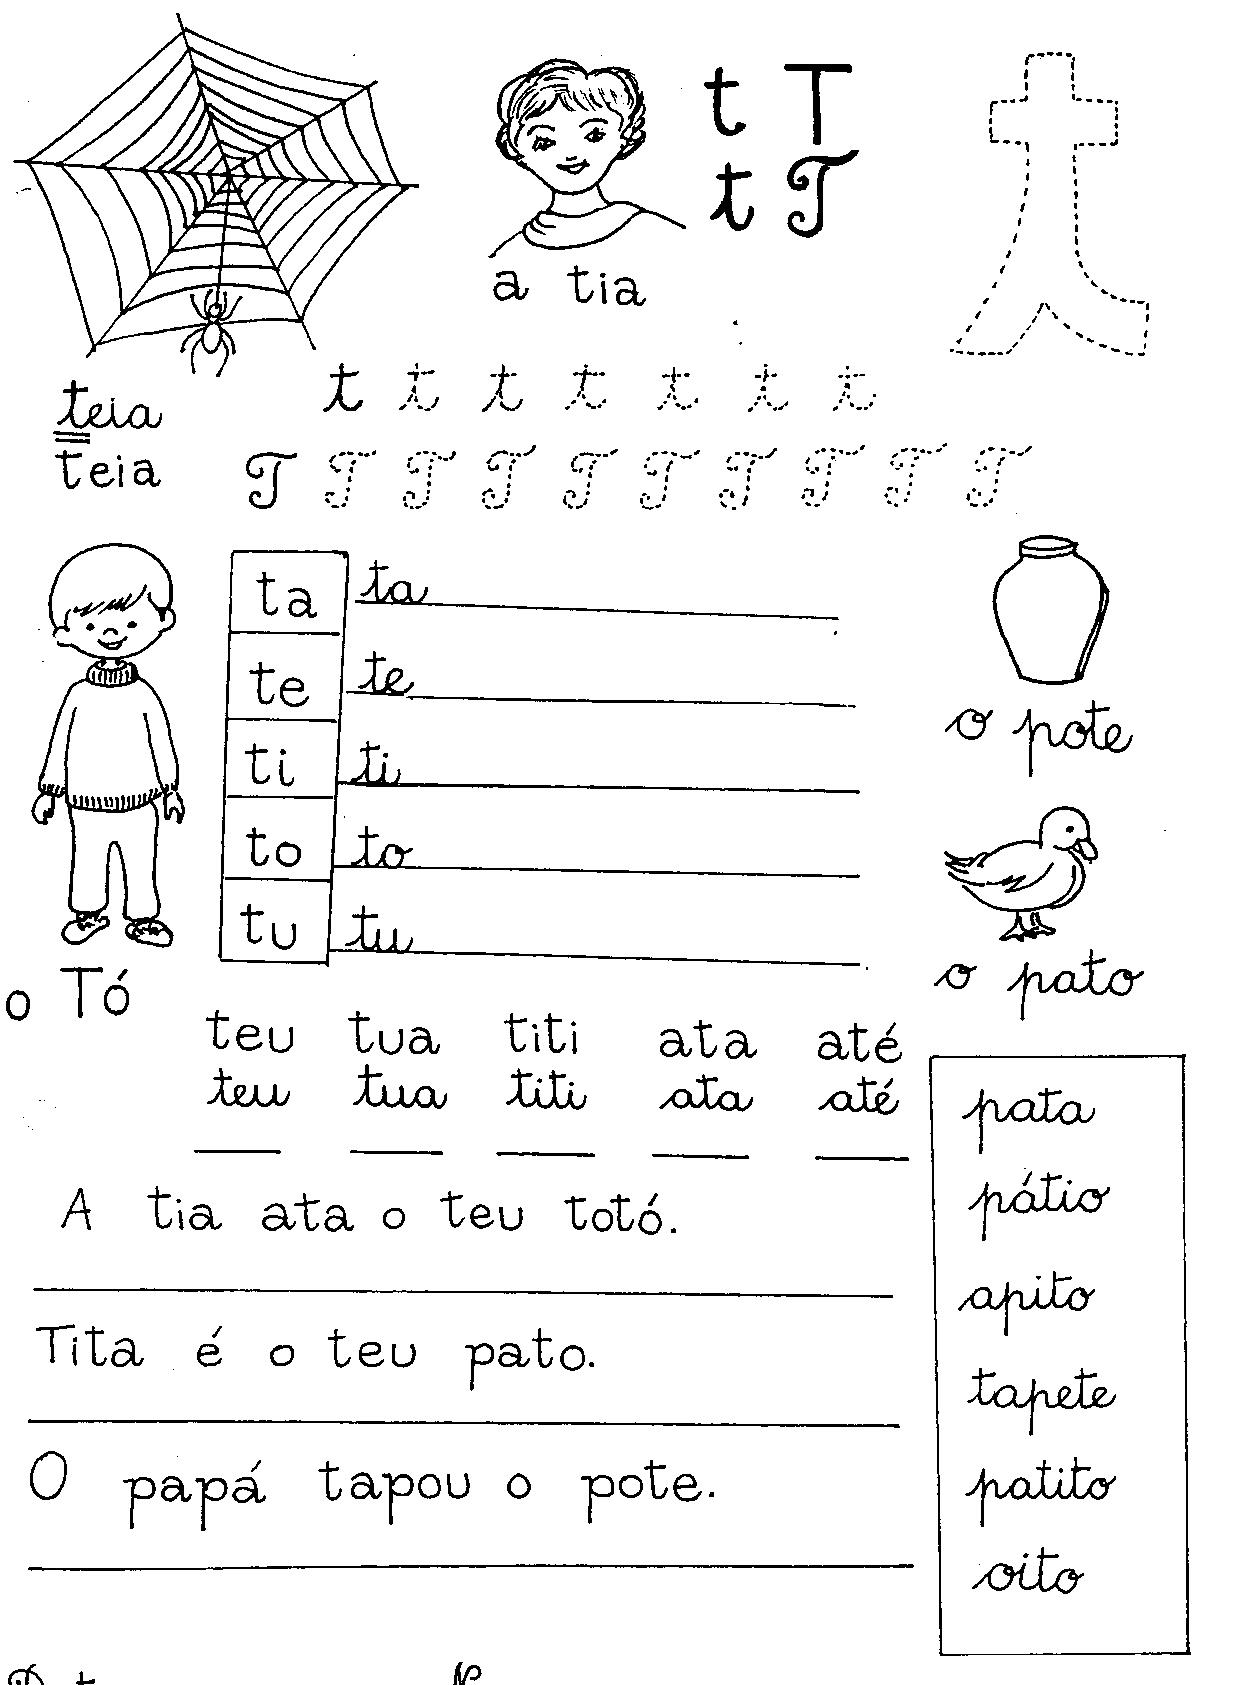 t T
t T
a tia
teia
teia
t t t t t t t
T T T T T T T T T T
ta ta
te te
ti ti
to to
tu tu
o pote
o pato
o Tó
teu tua titi ata até
teu tua titi ata até
A tia ata o teu totó.
Tita é o teu pato.
O papá tapou o pote.
pata
pátio
apito
tapete
patito
oito